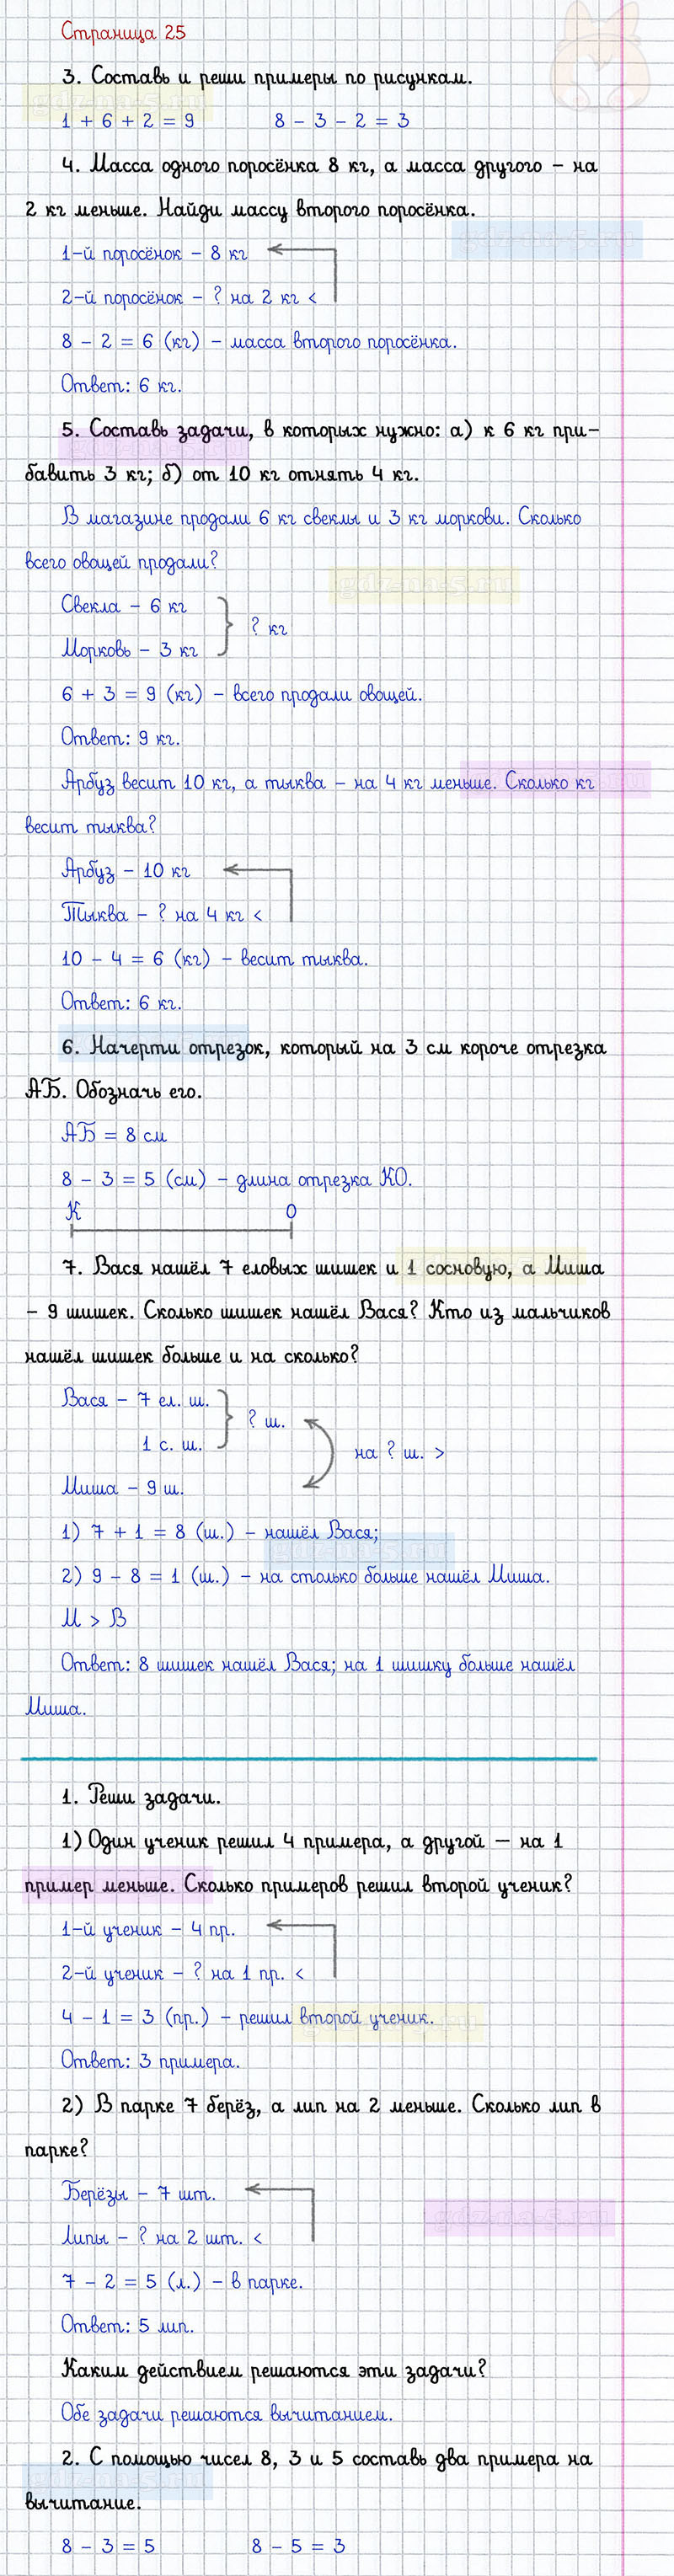 Страница 25
3. Составь и реши примеры по рисункам.
gdz-na-5.ru
1 + 6 + 2 = 9 8 - 3 - 2 = 3
4. Масса одного поросёнка 8 кг, а масса другого - на
2 кг меньше. Найди массу второго поросёнка.
gdz-na-5.ru
1-й поросёнок - 8 кг
2-й поросёнок - ? на 2 кг <
8 - 2 = 6 (кг) - масса второго поросёнка.
Ответ: 6 кг.
5. Составь задачи, в которых нужно: а) к 6 кг при-
бавить 3 кг; б) от 10 кг отнять 4 кг.
В магазине продали 6 кг свеклы и 3 кг моркови. Сколько
всего овощей продали?
gdz-na-5.ru
Свекла - 6 кг
? кг
Морковь - 3 кг
6 + 3 = 9 (кг) - всего продали овощей.
Ответ: 9 кг.
Арбуз весит 10 кг, а тыква - на 4 кг меньше. Сколько кг
весит тыква?
Арбуз - 10 кг
Тыква - ? на 4 кг <
10 - 4 = 6 (кг) - весит тыква.
Ответ: 6 кг.
6. Начерти отрезок, который на 3 см короче отрезка
АБ. Обозначь его.
АБ = 8 см
8 - 3 = 5 (см) - длина отрезка КО.
К О
7. Вася нашёл 7 еловых шишек и 1 сосновую, а Миша
- 9 шишек. Сколько шишек нашёл Вася? Кто из мальчиков
нашёл шишек больше и на сколько?
Вася - 7 ел. ш.
? ш.
1 с. ш.
на ? ш. >
Миша - 9 ш.
1) 7 + 1 = 8 (ш.) - нашёл Вася;
gdz-na-5.ru
2) 9 - 8 = 1 (ш.) - на столько больше нашёл Миша.
М > В
Ответ: 8 шишек нашёл Вася; на 1 шишку больше нашёл
Миша.
1. Реши задачи.
1) Один ученик решил 4 примера, а другой - на 1
пример меньше. Сколько примеров решил второй ученик?
1-й ученик - 4 пр.
2-й ученик - ? на 1 пр. <
4 - 1 = 3 (пр.) - решил второй ученик.
Ответ: 3 примера.
2) В парке 7 берёз, а лип на 2 меньше. Сколько лип в
парке?
Берёзы - 7 шт.
gdz-na-5.ru
Липы - ? на 2 шт. <
7 - 2 = 5 (л.) - в парке.
Ответ: 5 лип.
Каким действием решаются эти задачи?
Обе задачи решаются вычитанием.
2. С помощью чисел 8, 3 и 5 составь два примера на
gdz-na-5.ru
вычитание.
8 - 3 = 5 8 - 5 = 3